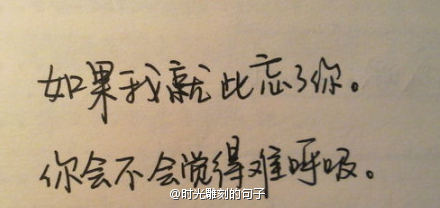 如果我就此忘了你。
你会不会觉得难呼吸。
@时光雕刻的句子